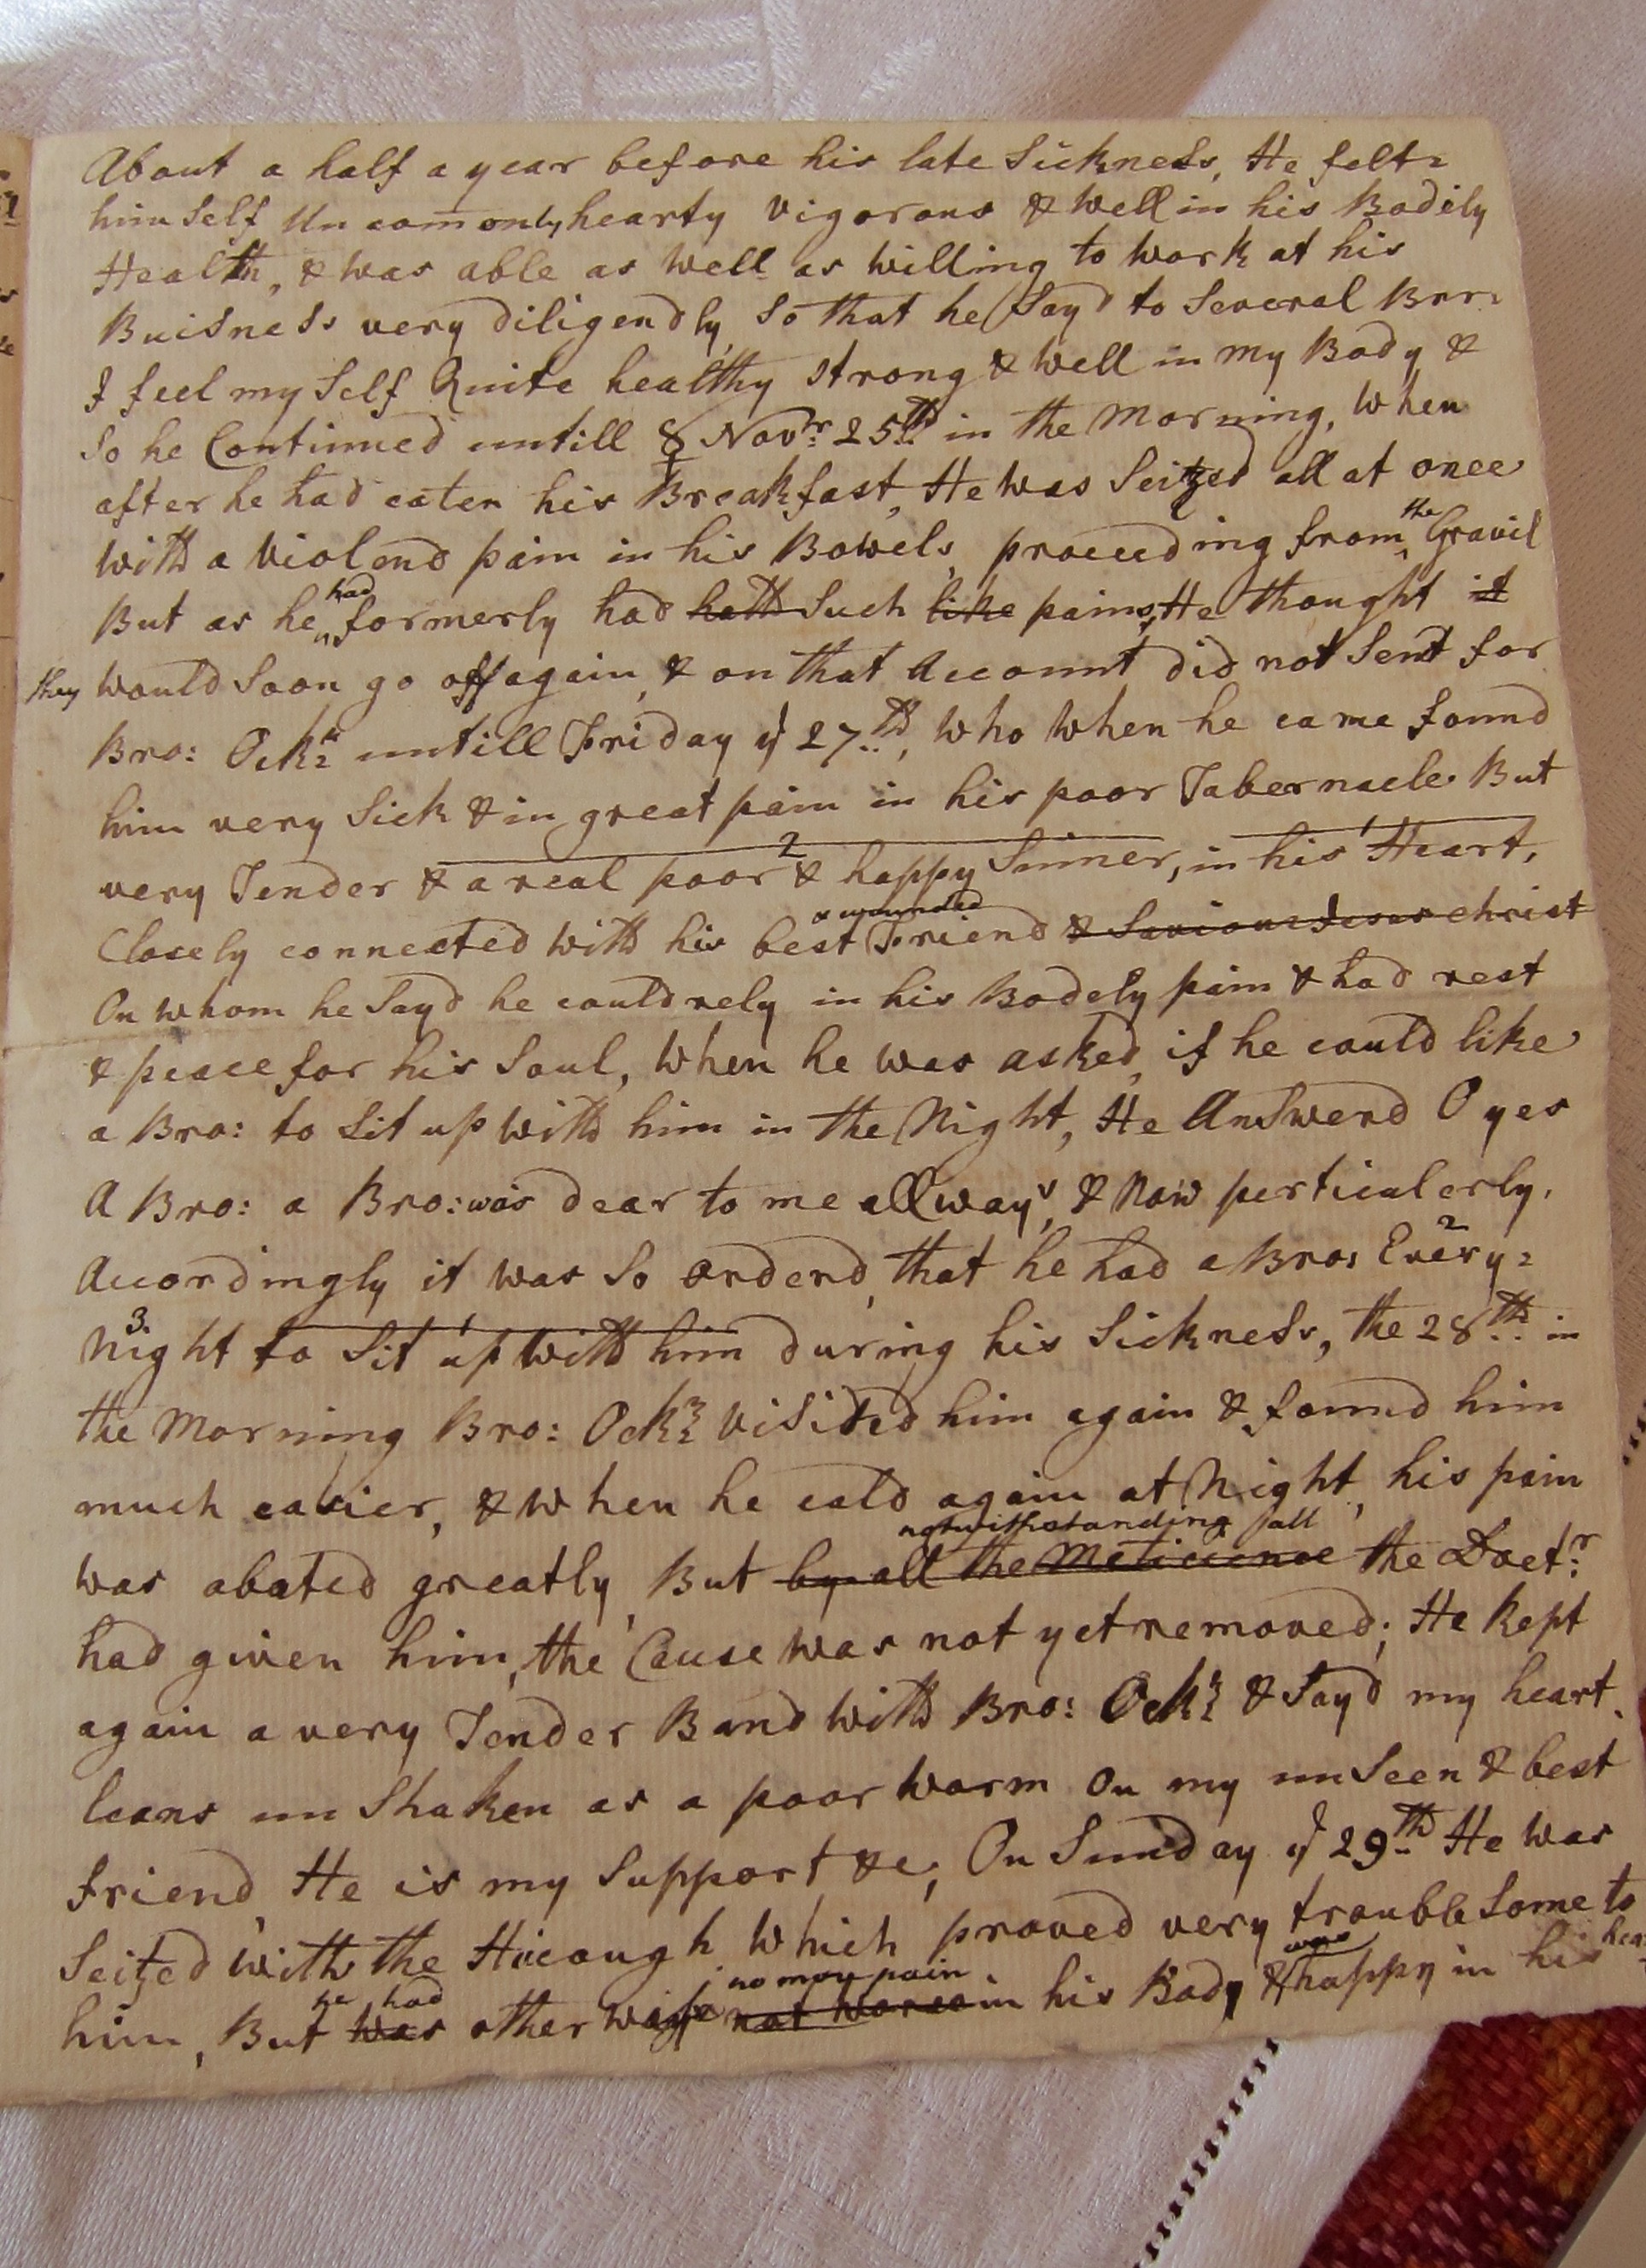 About a half a year before his late Sickness, He felt
himself Uncomonly hearty vigorous & well in his Bodily
Health, & was able as well as willing to work at his
Buisness very diligendly, So that he Sayd to Several Brr:
I feel my Self Quite healthy strong & well in my Body, &
So he Continued untill ☿ Novr. 25th in the Morning, when
after he had eaten his Breakfast, He was Seitzed all at once
with a Violend pain in his Bowels, proceeding from the Gravil
But as he had formerly had hath Such like pains, He thought it
they would Soon go off again, & on that Account did not Sent for
Bro: Ock:z untill Friday ye 27th, who when he came found
him very Sick & in great pain in his poor Tabernacle. But
very Tender & a real poor 2 & happy Sinner, in his 1 Heart,
Closely connected with his best & wounded Friend & Saviour Jesus Christ
On whom he Sayd he could rely in his Bodely pain & had rest
& peace for his Soul, When he was asked, if he could like
a Bro: to Sit up with him in the Night, He AnSwerd O yes
A Bro: a Bro: was dear to me allways, & Now perticulerly.
Accordingly it was So orderd, that he had a Bro: Every 2
Night 3. to Sit 1 up with him during his Sickness, the 28th in
the Morning Bro: Ockz visited him again & found him
much easier, & when he cald again at Night, his pain
was abated greatly, But by all the Meticience notwithstanding all the Doctr.
had given him, the Cause was not yet removed; He kept
again a very Tender Band with Bro: Ockz & Sayd my heart
leans unShaken as a poor worm on my unSeen & best
friend, He is my Support &c, On Sunday ye 29th He was
Seitzed with the Hiccough which proved very troubleSome to
him, But was he had otherwise not worse no more pain in his Body & was happy in his hea